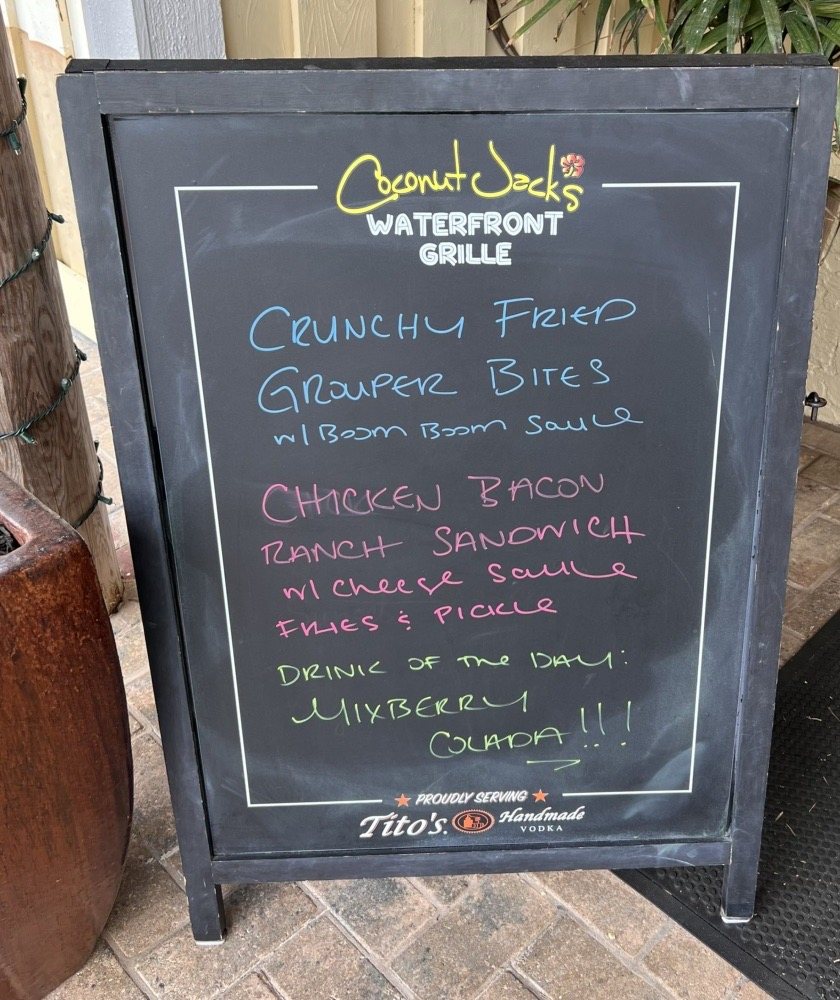 Coconut Jack's
WATERFRONT
GRILLE
CRUNCHY FRIED
GROUPER BITES
w/ BOOM BOOM SAUCE
CHICKEN BACON
RANCH SANDWICH
w/ CHEESE SAUCE
FRIES & PICKLE
DRINK OF THE DAY:
MIXBERRY
COLADA!!!
PROUDLY SERVING
Tito's Handmade
VODKA